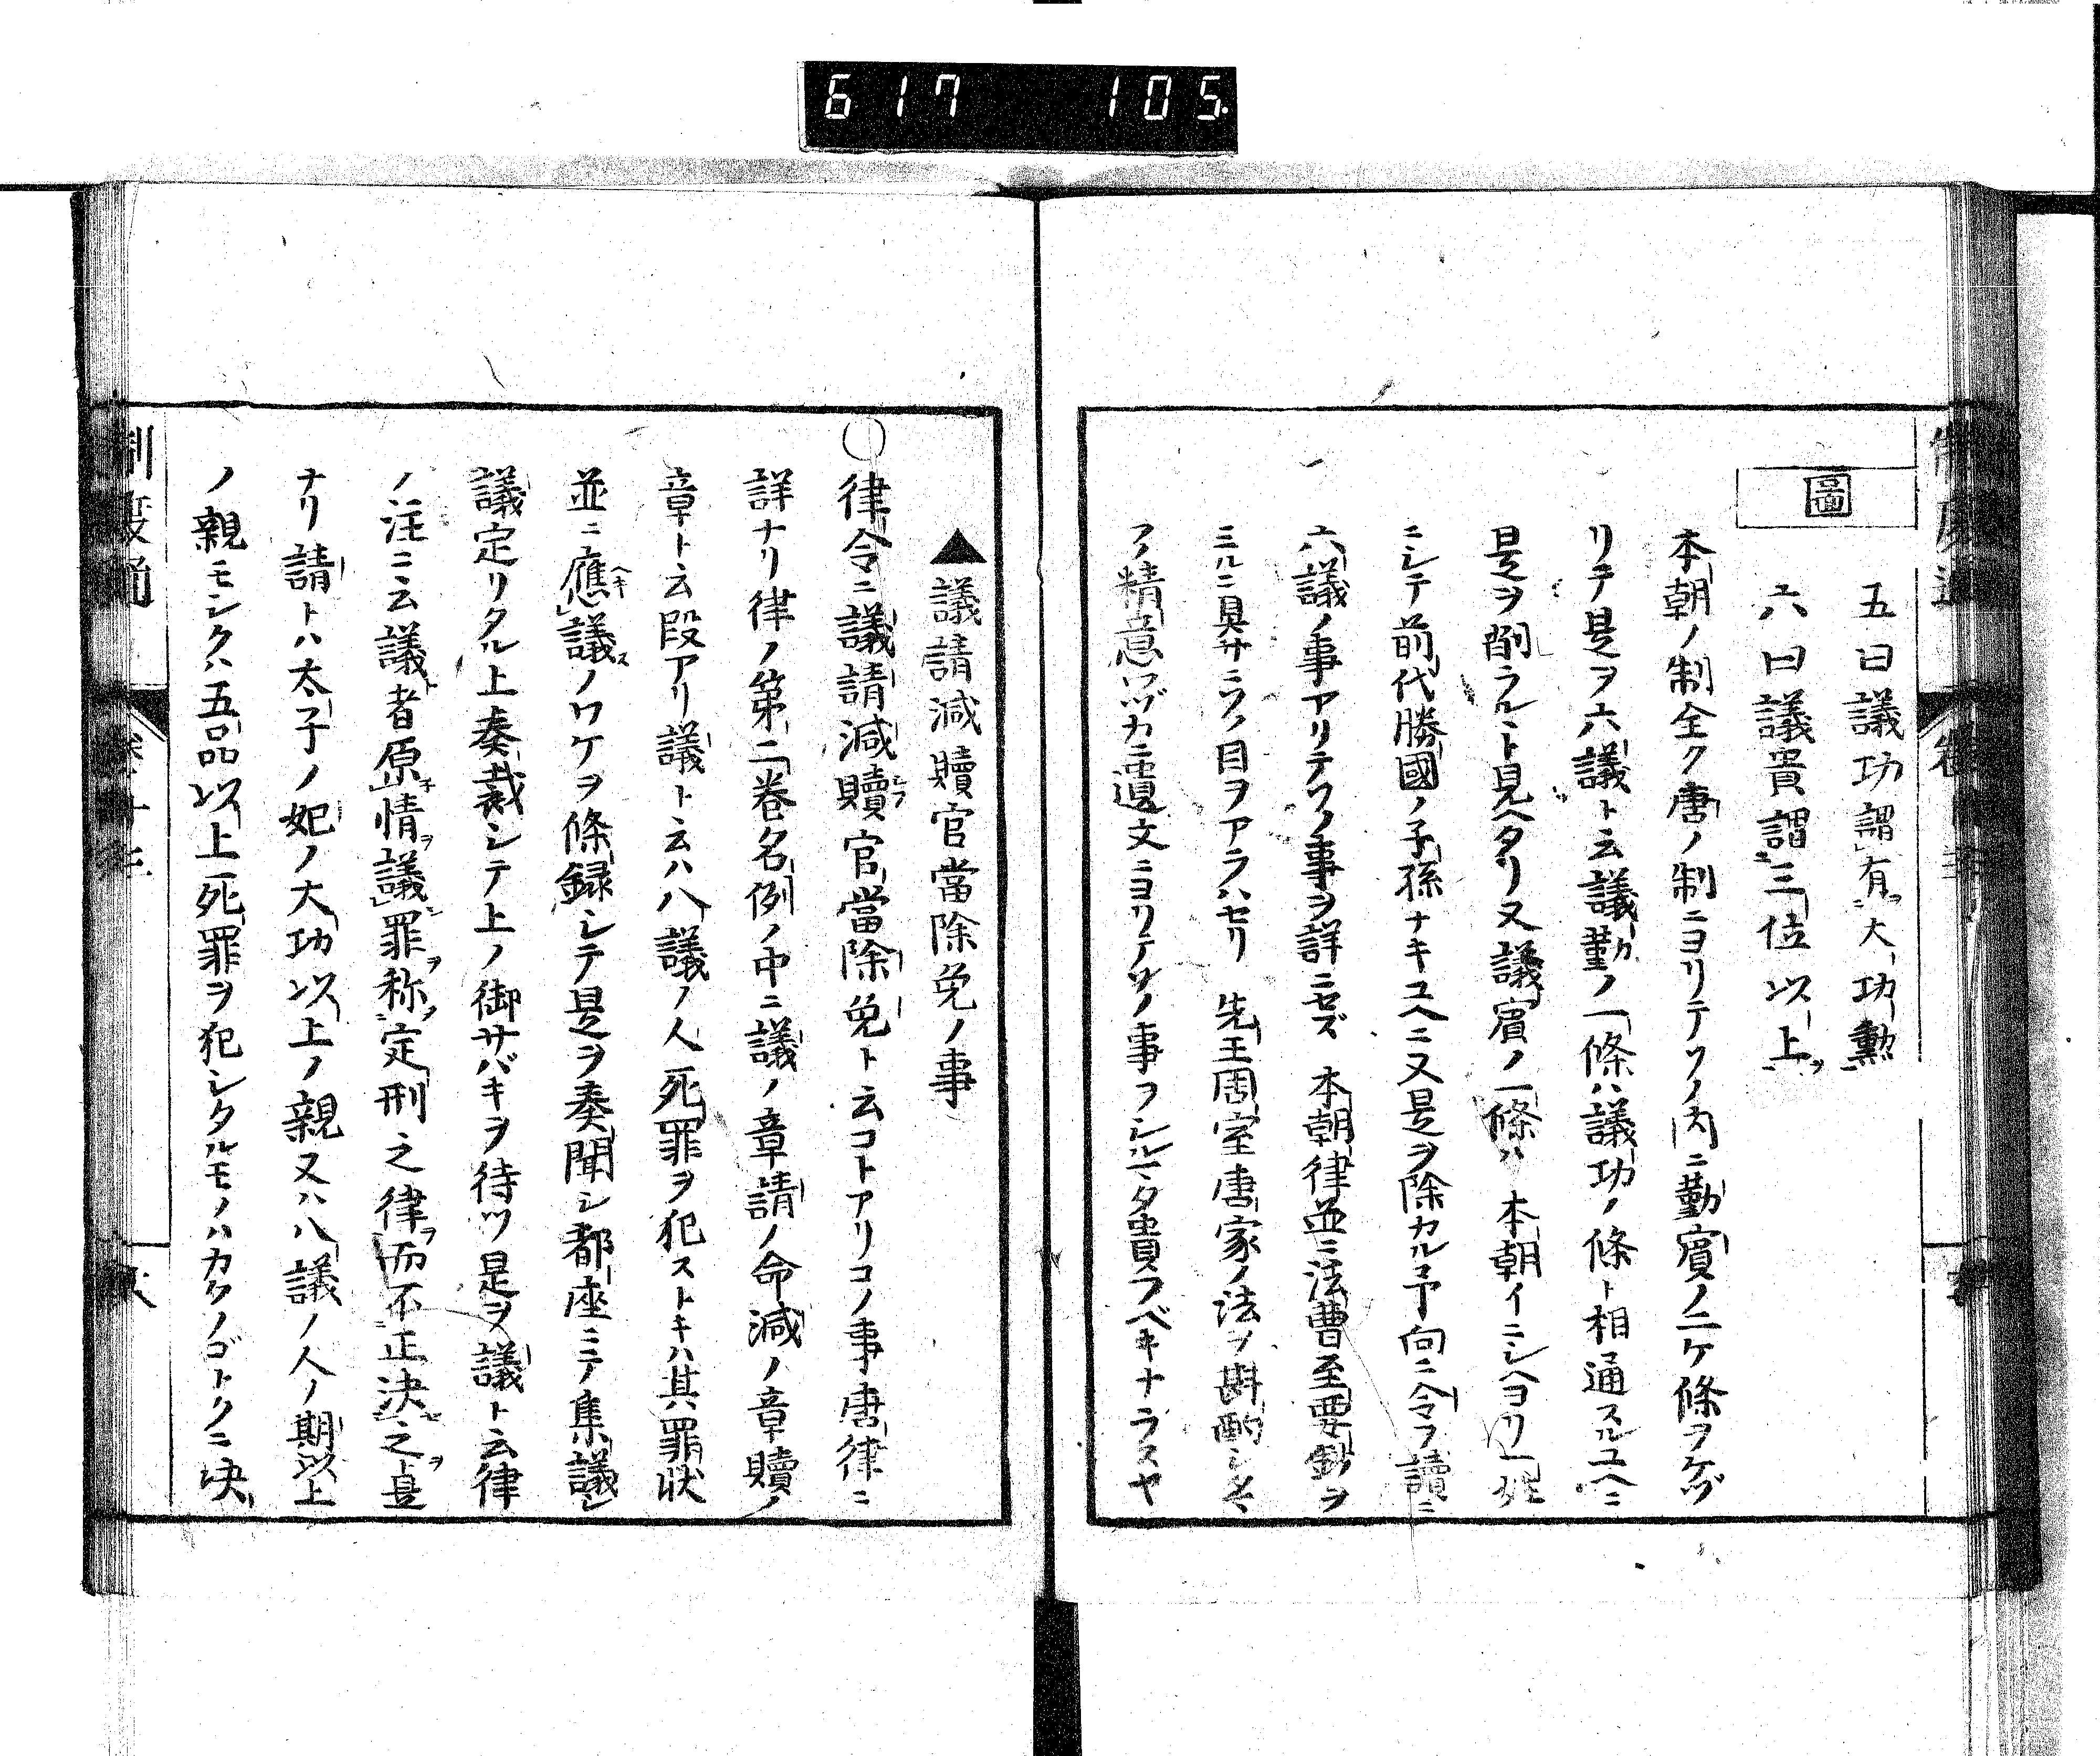 617 105.
五曰議功謂有大功勲
六曰議貴謂三位以上
圖
本朝ノ制全ク唐ノ制ニヨリテソノ内ニ勤賓ノ二ケ條ヲケヅ
リテ是ヲ六議ト云議勤ノ一條ハ議功ノ條ト相通スルユヘニ
是ヲ削ラルト見ヘタリ又議賓ノ一條ハ 本朝イニシヘヨリ一姓
ニシテ前代勝國ノ子孫ナキユヘニ又是ヲ除カル予向ニ令ヲ讀ニ
六議ノ事アリテソノ事ヲ詳ニセズ 本朝律並ニ法曹至要鈔ヲ
ミルニ具サニソノ目ヲアラハセリ 先王周室唐家ノ法ヲ斟酌シ玉
フノ精意ハヅカニ遺文ニヨリテソノ事ヲシルマタ貴フベキナラスヤ
▲議請減贖官當除免ノ事
○律令ニ議請減贖官當除免ト云コトアリコノ事唐律ニ
詳ナリ律ノ第二巻名例ノ中ニ議ノ章請ノ命減ノ章贖ノ
章ト云段アリ議ト云ハ八議ノ人死罪ヲ犯ストキハ其罪状
並ニ應議ノワケヲ條録シテ是ヲ奏聞シ都座ニテ集議シ
議定リタル上奏裁シテ上ノ御サバキヲ待ツ是ヲ議ト云律
ノ注ニ云議者原情議罪称定刑之律而不正決之是
ナリ請トハ太子ノ妃ノ大功以上ノ親又ハ八議ノ人ノ期以上
ノ親モシクハ五品以上死罪ヲ犯シタルモノハカクノゴトクニ决
制度通